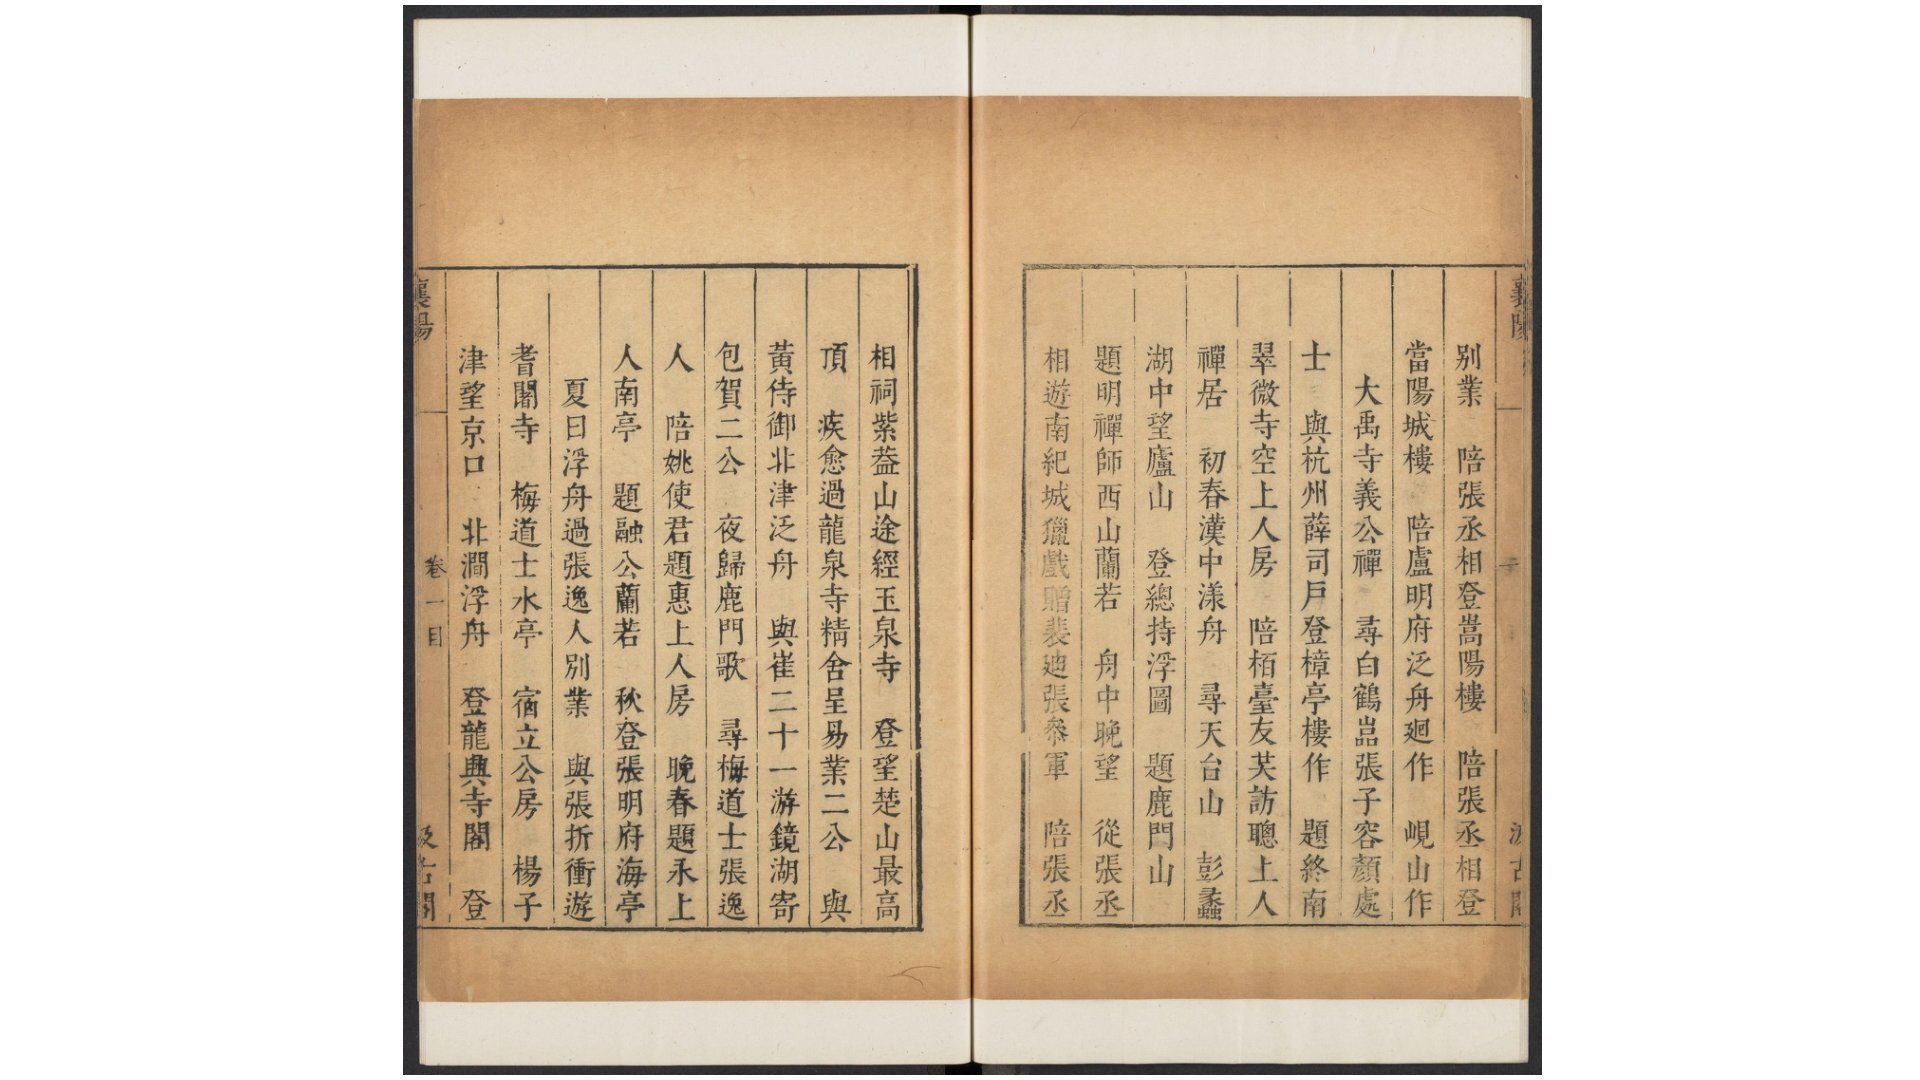 襄陽
二
汲古閣
別業　陪張丞相登嵩陽樓　陪張丞相登
當陽城樓　陪盧明府泛舟廻作　峴山作
大禹寺義公禪　尋白鶴嵓張子容顏處
士　與杭州薛司戶登樟亭樓作　題終南
翠微寺空上人房　陪栢臺友芖訪聰上人
禪居　初春漢中漾舟　尋天台山　彭蠡
湖中望廬山　登總持浮圖　題鹿門山
題明禪師西山蘭若　舟中晚望　從張丞
相遊南紀城獵戲贈裴迪張叅軍　陪張丞
相祠紫葢山途經玉泉寺　登望楚山最高
頂　疾愈過龍泉寺精舍呈易業二公　與
黃侍御北津泛舟　與崔二十一游鏡湖寄
包賀二公　夜歸鹿門歌　尋梅道士張逸
人　陪姚使君題惠上人房　晚春題永上
人南亭　題融公蘭若　秋登張明府海亭
夏日浮舟過張逸人別業　與張折衝遊
耆闍寺　梅道士水亭　宿立公房　楊子
津望京口　北澗浮舟　登龍興寺閣　登
襄陽
卷一目
汲古閣